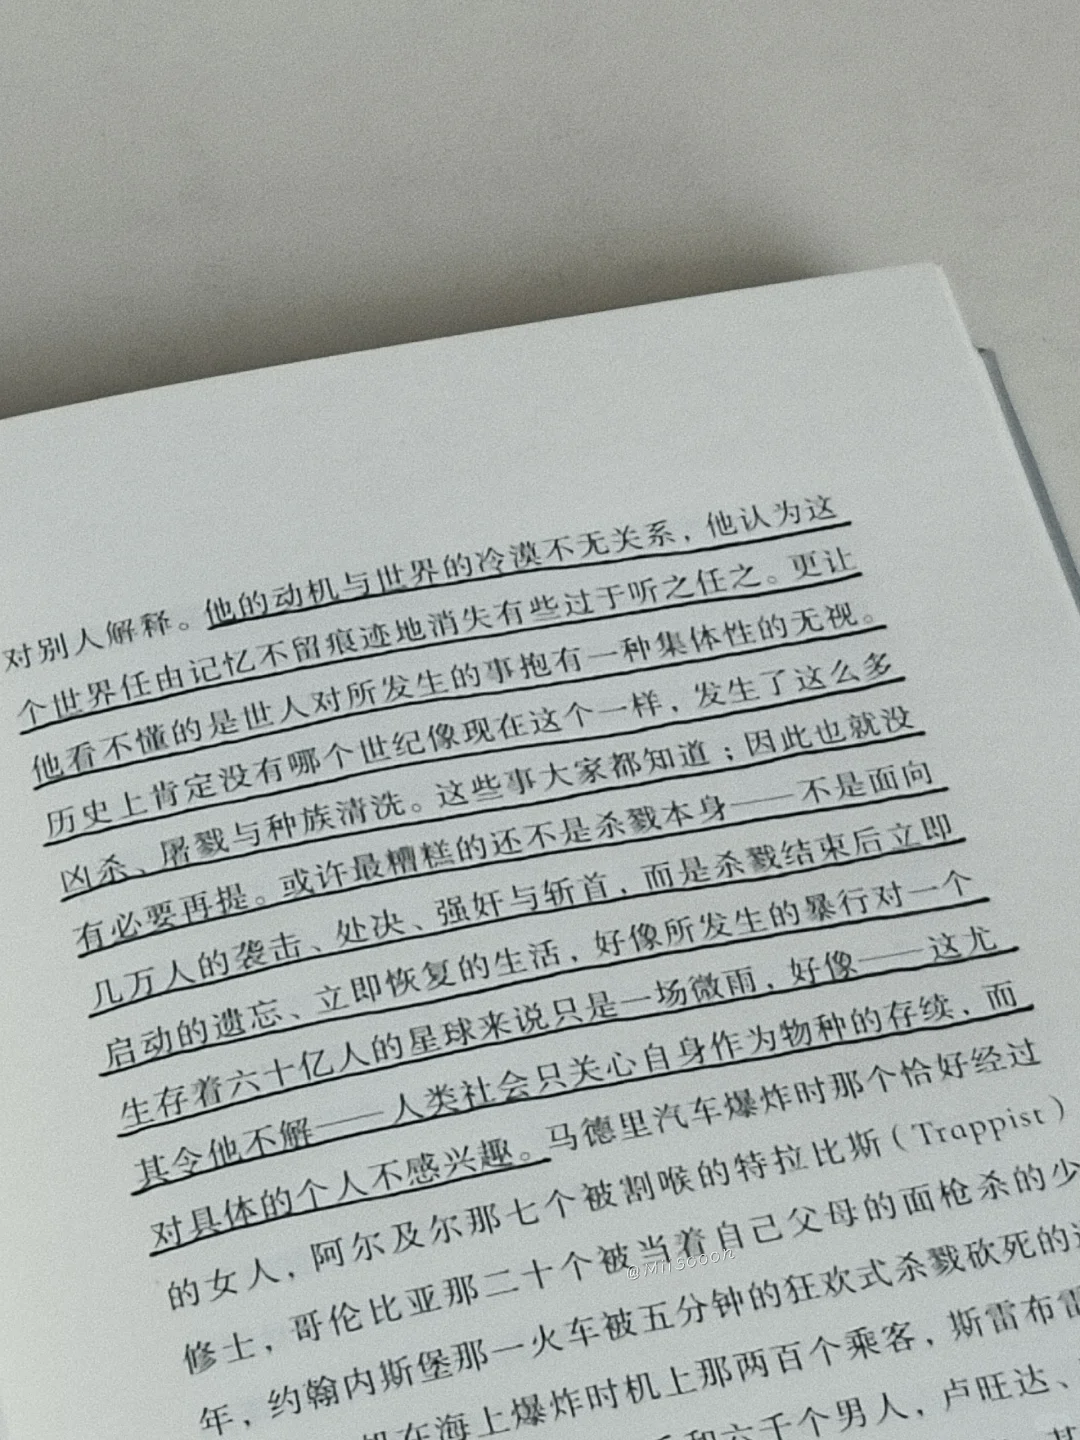 对别人解释。他的动机与世界的冷漠不无关系，他认为这
个世界任由记忆不留痕迹地消失有些过于听之任之。更让
他看不懂的是世人对所发生的事抱有一种集体性的无视。
历史上肯定没有哪个世纪像现在这个一样，发生了这么多
凶杀、屠戮与种族清洗。这些事大家都知道；因此也就没
有必要再提。或许最糟糕的还不是杀戮本身——不是面向
几万人的袭击、处决、强奸与斩首，而是杀戮结束后立即
启动的遗忘、立即恢复的生活，好像所发生的暴行对一个
生存着六十亿人的星球来说只是一场微雨，好像——这尤
其令他不解——人类社会只关心自身作为物种的存续，而
对具体的个人不感兴趣。马德里汽车爆炸时那个恰好经过
的女人，阿尔及尔那七个被割喉的特拉比斯（Trappist）
修士，哥伦比亚那二十个被当着自己父母的面枪杀的少
年，约翰内斯堡那一火车被五分钟的狂欢式杀戮砍死的
在海上爆炸时机上那两百个乘客，斯雷布雷
和六千个男人，卢旺达、
@Mirsooon